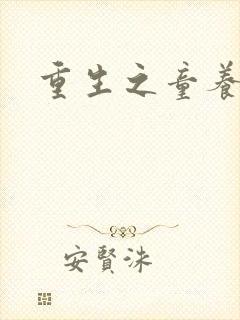 重生之童養
安賢洙